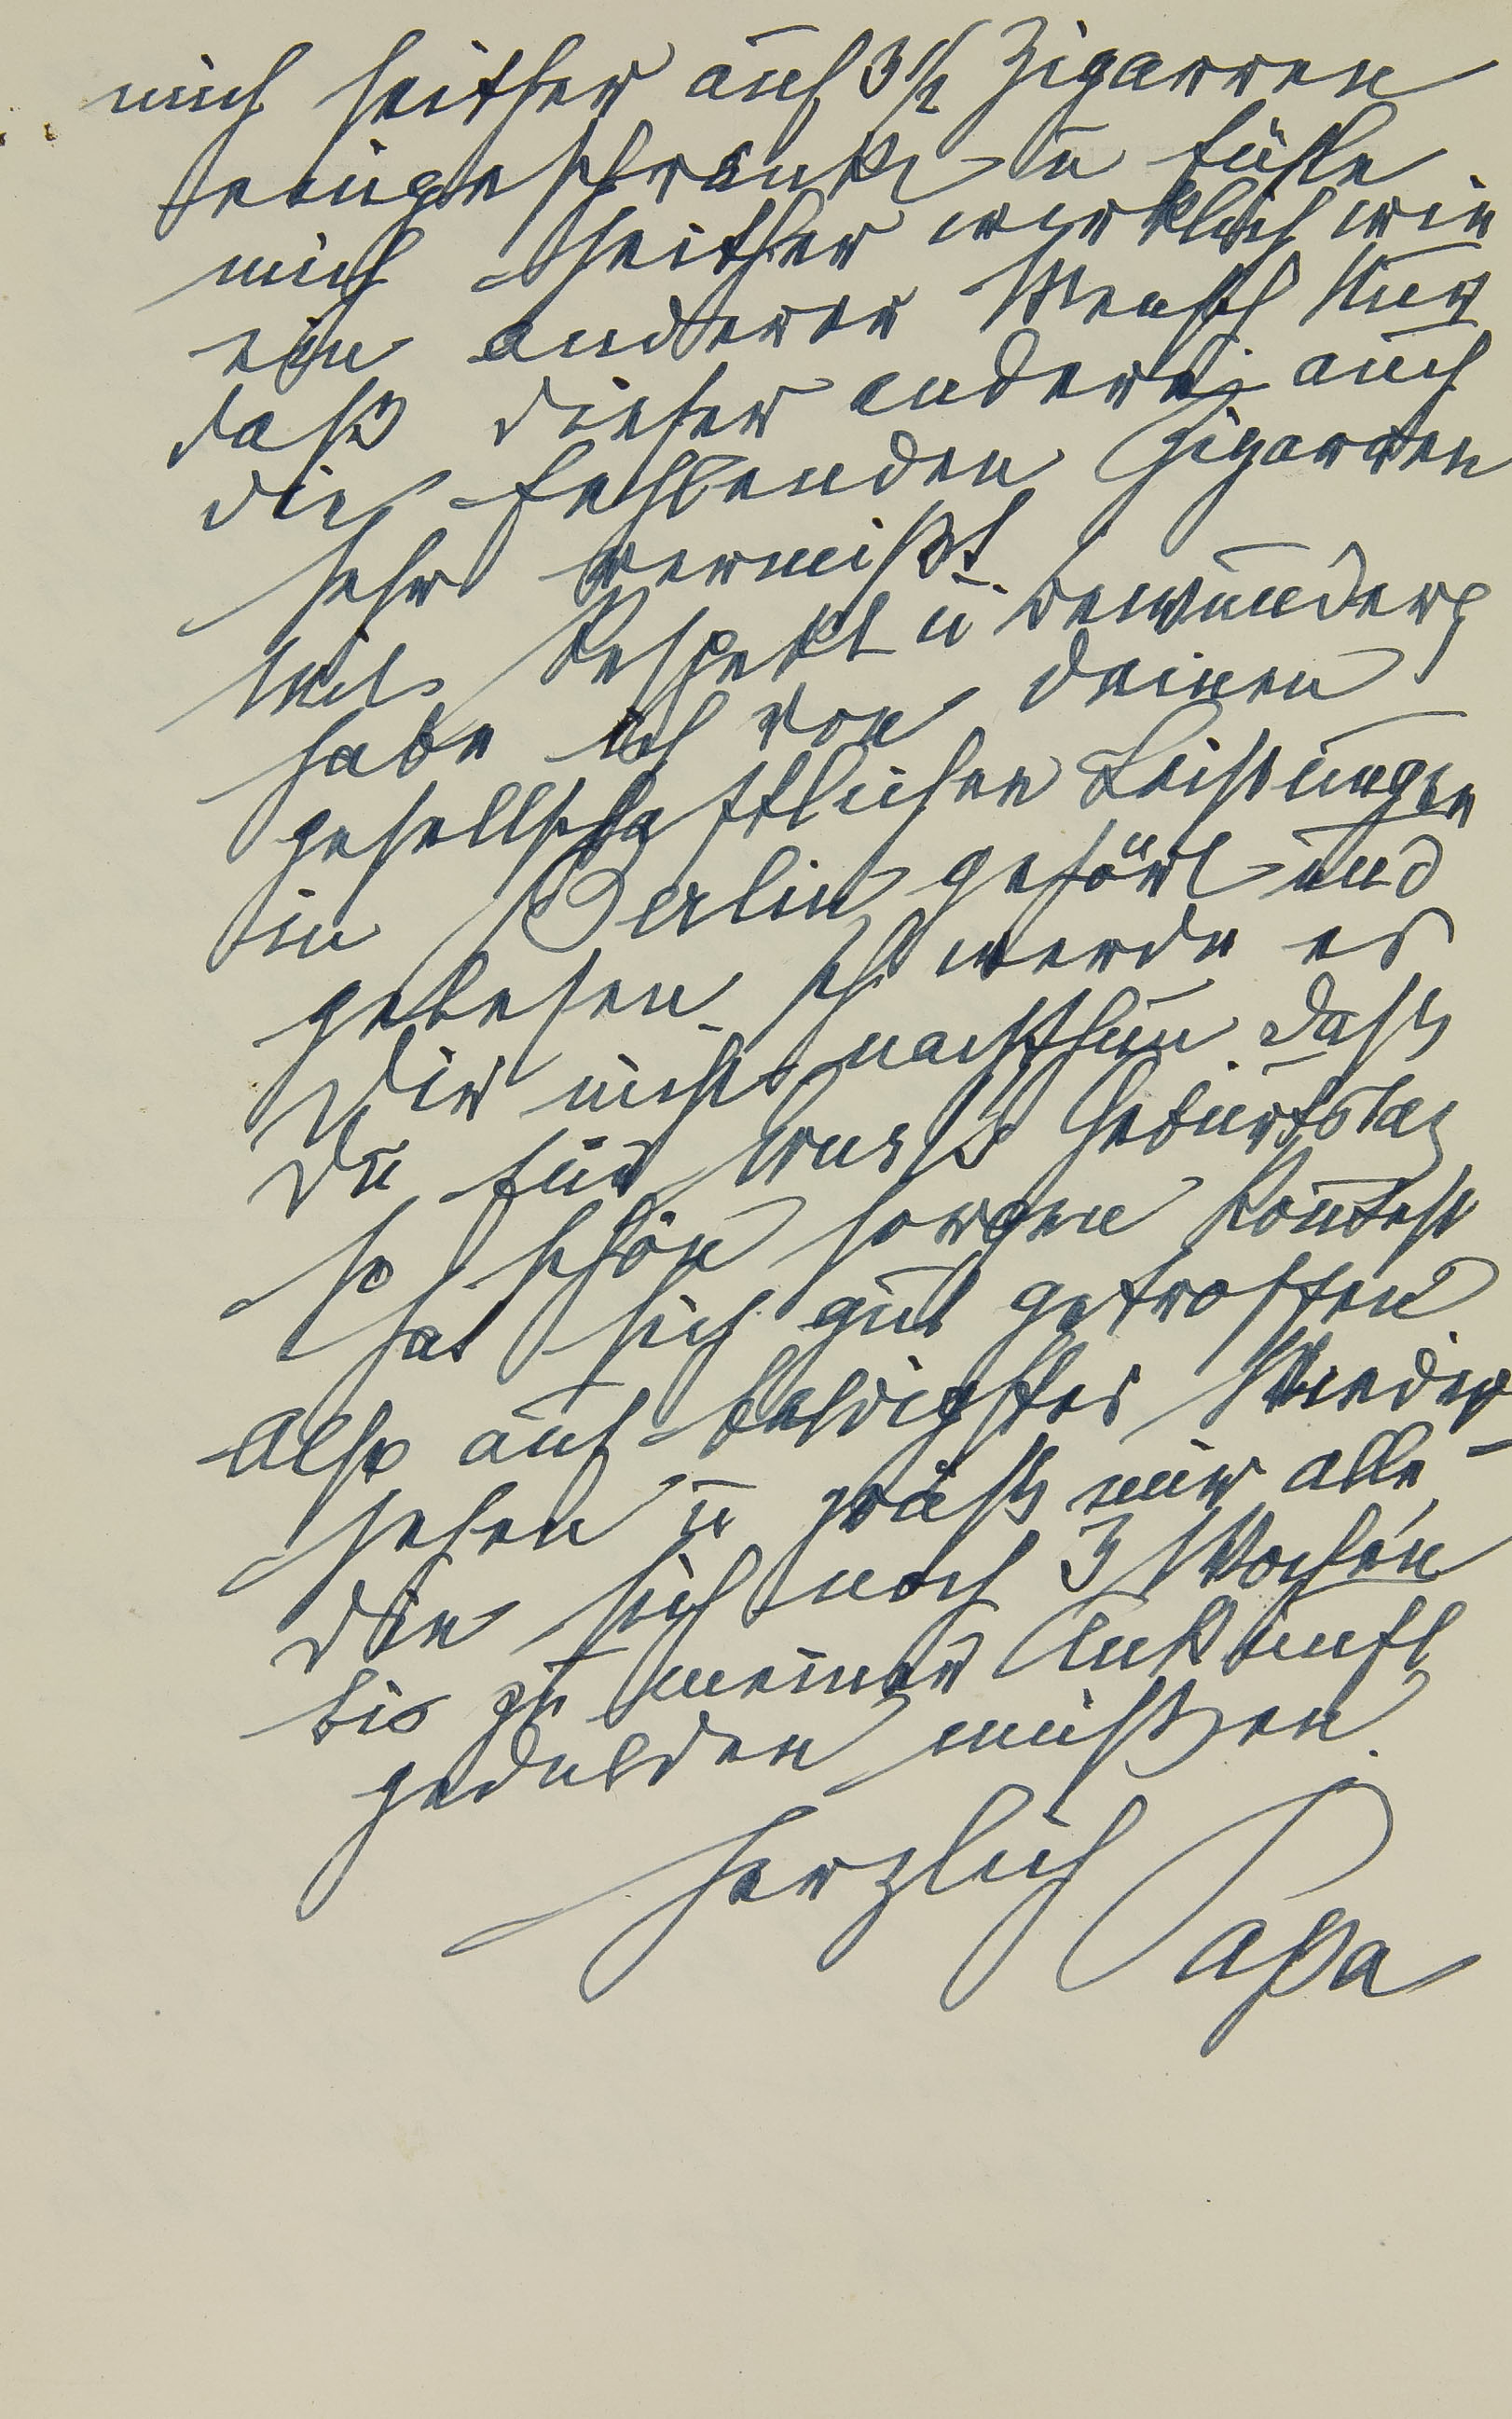 mich seither auf 3 1/2 Zigarren
eingeschränkt u fühle
mich seither wirklich wie
ein anderer Mensch Nur
daß dieser andere auch
die fehlenden Zigarren
sehr vermißt.
Mit Respekt u Bewunderg
habe ich von Deinen
gesellschaftlichen Leistungen
in Berlin gehört und
gelesen. Ich werde es
Dir nicht nachthun. Dass
Du für Geburtstag
so schön sorgen konntest
hat sich gut getroffen
Also auf baldigstes Wieder-
sehen u grüss mir alle,
die sich noch 3 Wochen
bis zu meiner Ankunft
gedulden müssen.
Herzlich
Papa